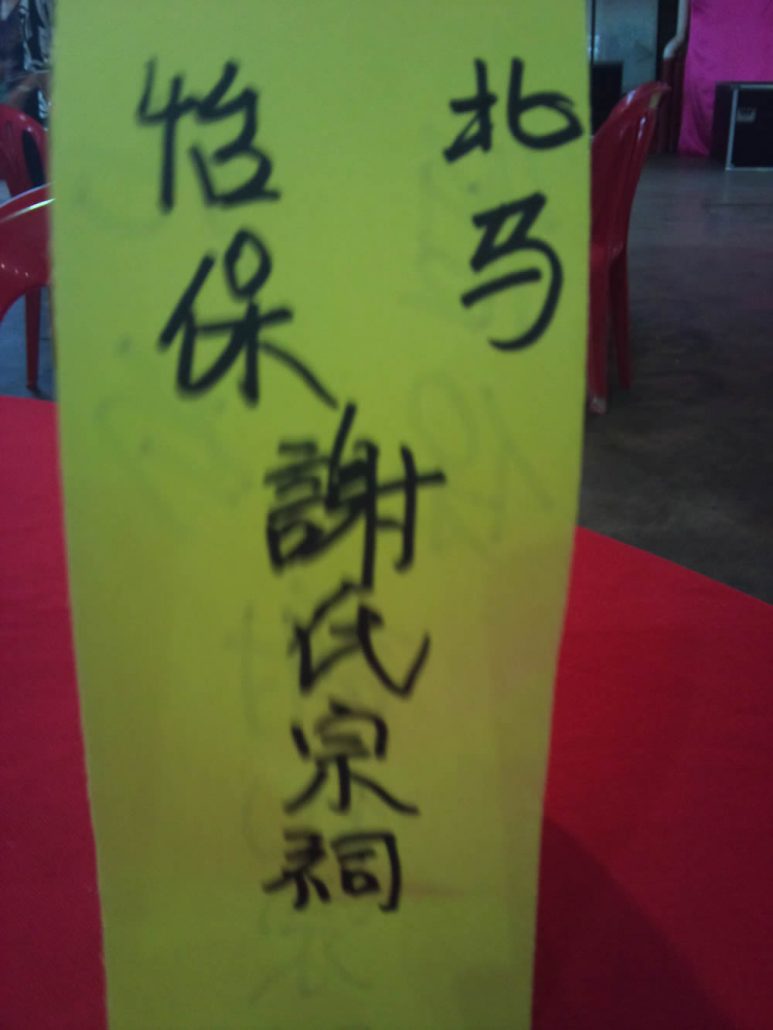 北马
怡保
謝氏宗祠